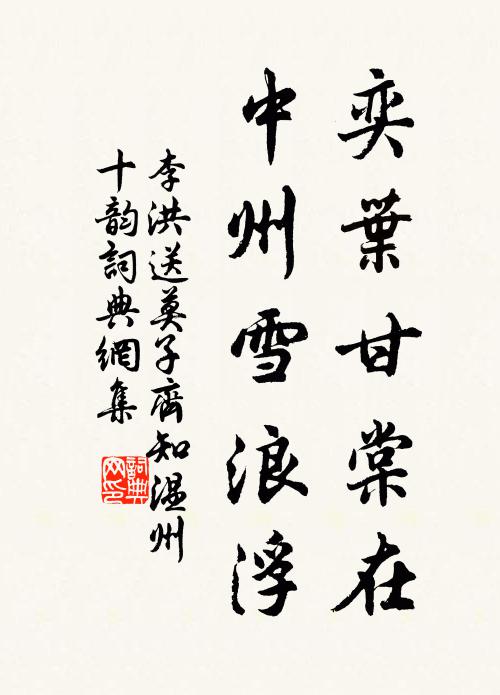 奕葉甘棠在
中州雪浪浮
李洪送莫子齊知温州
十韵詞典網集
詞典
网印